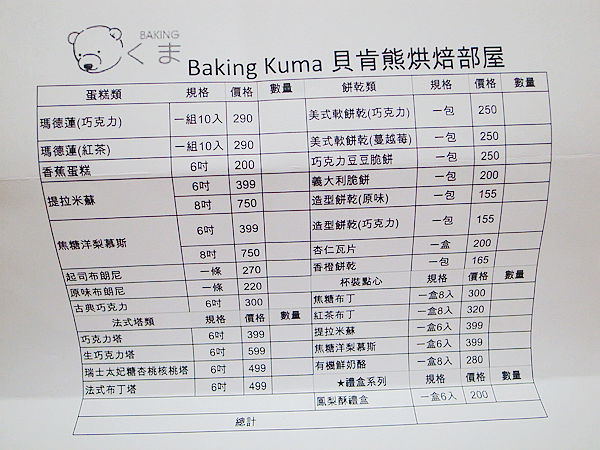 BAKING
くま
Baking Kuma 貝肯熊烘焙部屋
蛋糕類 規格 價格 數量
瑪德蓮(巧克力) 一組10入 290
瑪德蓮(紅茶) 一組10入 290
香蕉蛋糕 6吋 200
提拉米蘇 6吋 399
8吋 750
焦糖洋梨慕斯 6吋 399
8吋 750
起司布朗尼 一條 270
原味布朗尼 一條 220
古典巧克力 6吋 300
法式塔類 規格 價格 數量
巧克力塔 6吋 399
生巧克力塔 6吋 599
瑞士太妃糖杏桃核桃塔 6吋 499
法式布丁塔 6吋 499
餅乾類 規格 價格 數量
美式軟餅乾(巧克力) 一包 250
美式軟餅乾(蔓越莓) 一包 250
巧克力豆豆脆餅 一包 250
義大利脆餅 一包 200
造型餅乾(原味) 一包 155
造型餅乾(巧克力) 一包 155
杏仁瓦片 一盒 200
香橙餅乾 一包 165
杯裝點心 規格 價格 數量
焦糖布丁 一盒8入 300
紅茶布丁 一盒8入 320
提拉米蘇 一盒6入 399
焦糖洋梨慕斯 一盒6入 399
有機鮮奶酪 一盒8入 280
★禮盒系列 規格 價格 數量
鳳梨酥禮盒 一盒6入 200
總計